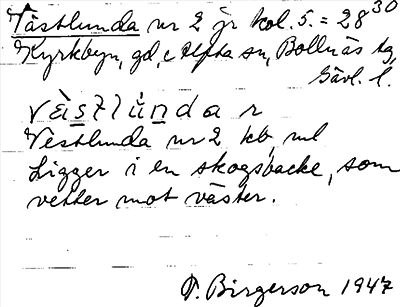 Västlunda nr 2 jr kol. 5. = 28³⁰
Kyrkbyn, gd, c Alfta sn, Bollnäs tg,
Gävl. l.
väs̲tlùn̲da r
Vestlunda nr 2 kb, ml
Ligger i en skogsbacke, som
vetter mot väster.
P. Birgerson 1947